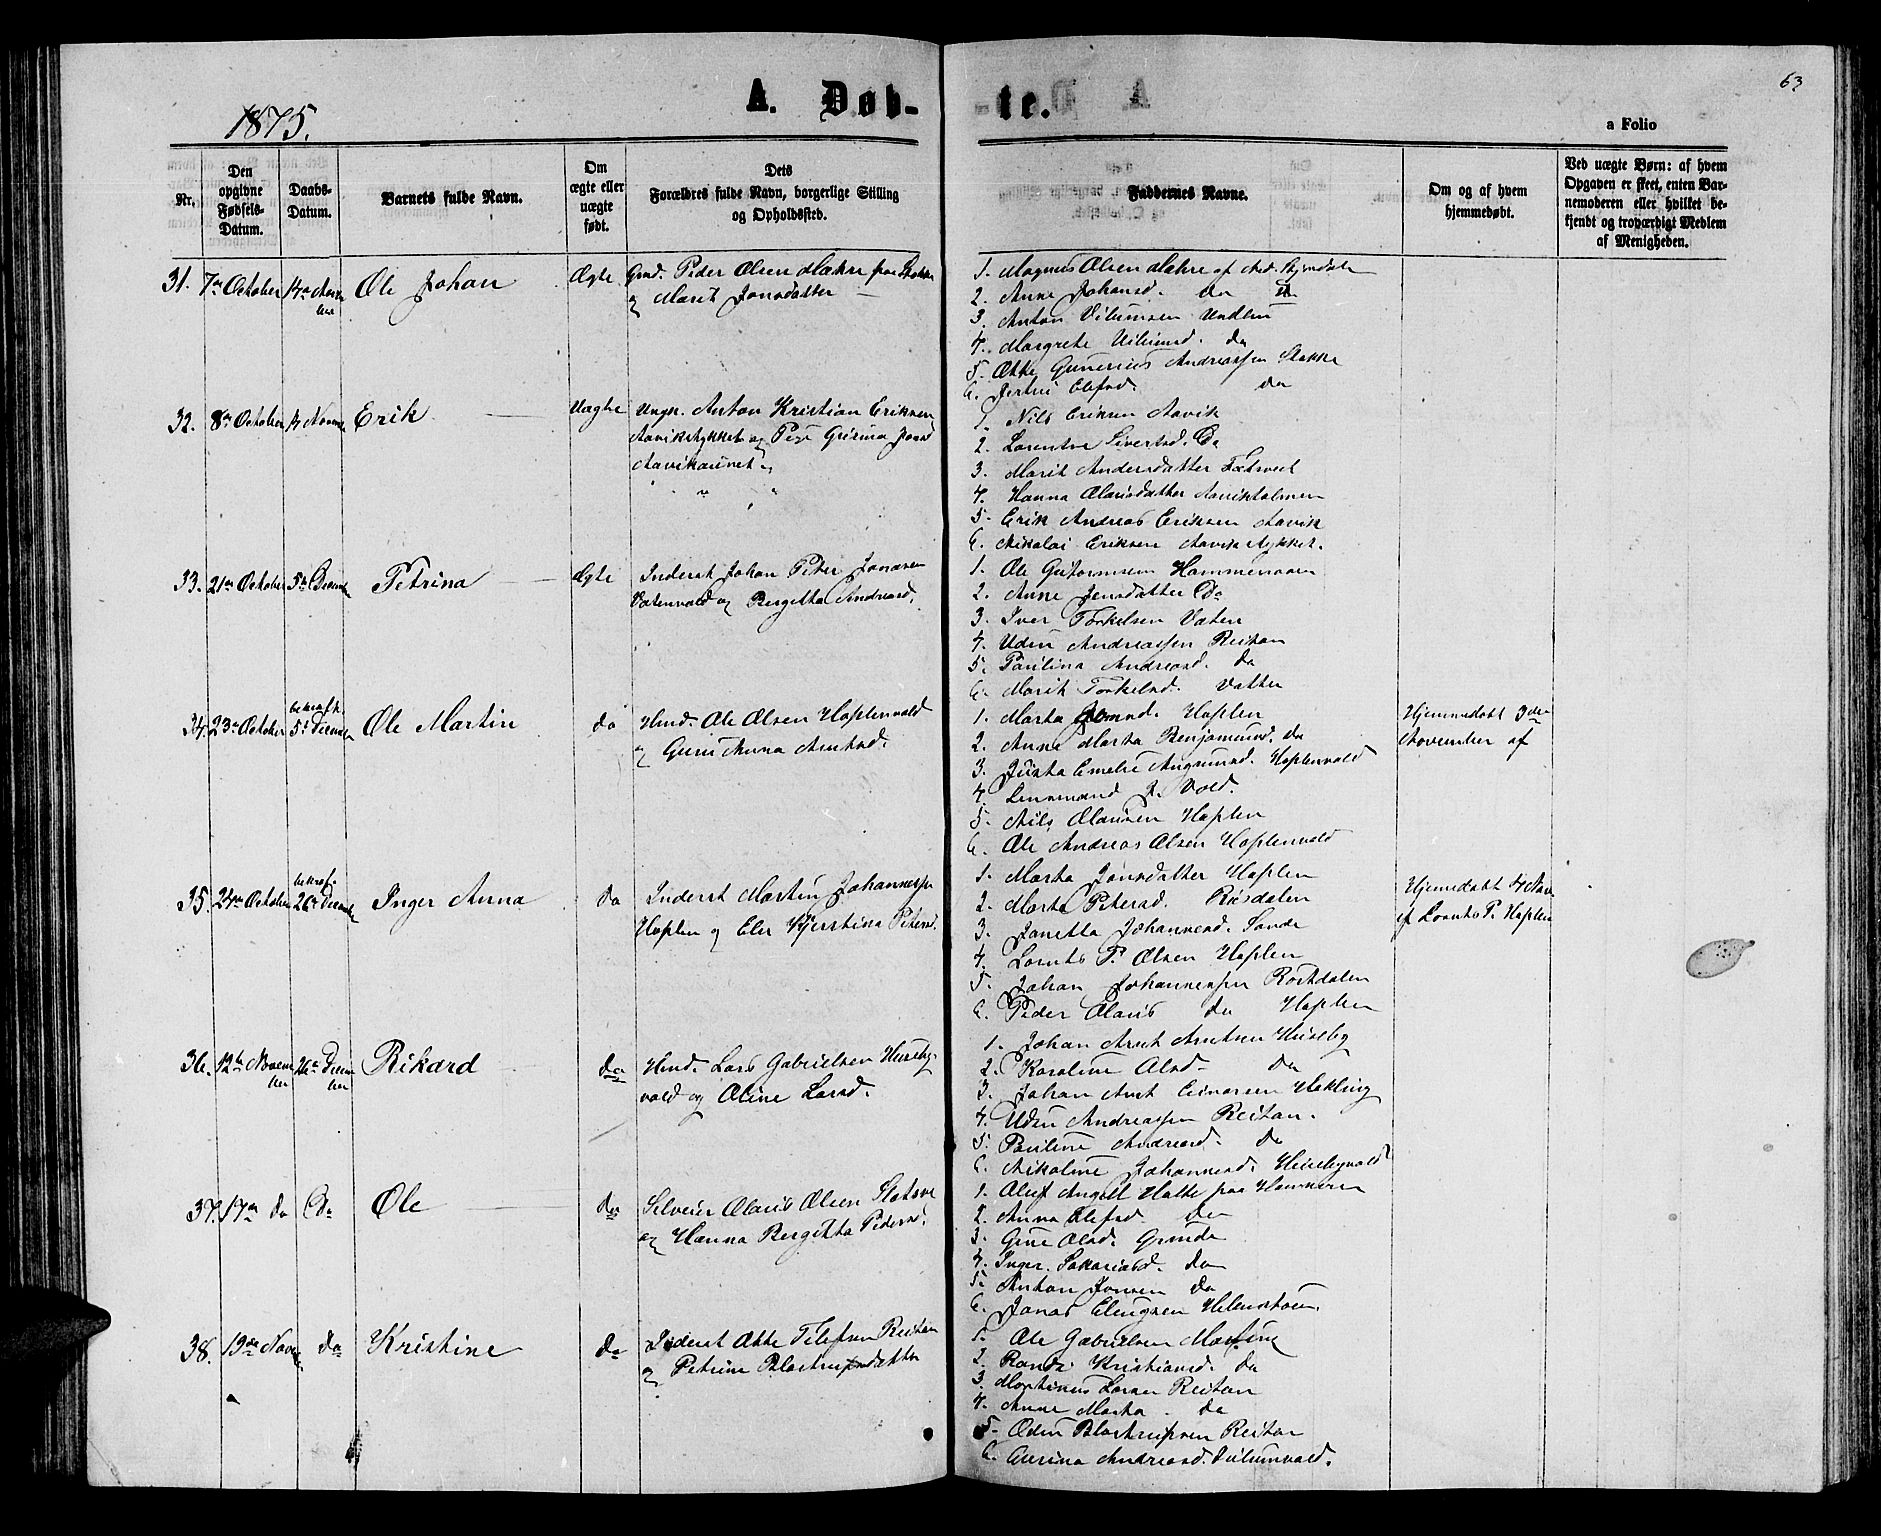 1875.
A. Døb-
te.
63
a Folio
Nr.
Den opgivne Fødsels-Datum.
Daabs-Datum.
Barnets fulde Navn.
Om ægte eller uægte født.
Dets Forældres fulde Navn, borgerlige Stilling og Opholdssted.
Faddernes Navne.
Om og af hvem hjemmedøbt.
Ved uægte Børn: af hvem Opgaven er skeet, enten Barnemoderen eller hvilket bekjendt og troværdigt Medlem af Menigheden.
31. 7de October 14de Novem
ber
Ole Johan
Ægte
Gmd. Peder Olsen Mæhre paa Stokke
og Marit Jonsdatter
1. Magnus Olsen Mæhre af
2. Anne Johansd. do
3. Anton Vilumsen
4. Margrete Vilumsd. do
5. Otte Gunerius Andreassen Stokke
6. Jertru Olefsd. do
32. 8de October 14 Novemb
Erik
Uægte
Ungk. Anton Kristian Eriksen
Aavikstykket og Pige Gurina Jonsd
Aavikaunet
1. Nils Eriksen Aavik
2. Lorentse Sivertsd. Do
3. Marit Andersdatter
4. Hanna Olausdatter Aavikholmen
5. Erik Andreas Eriksen Aavik
6. Nikolai Eriksen Aavikstykket.
33. 21de October 5te Decemb
Petrina
Ægte
Inderst Johan Peter Jonasen
Vatenvald og Bergitta Andreasd.
1. Ole Guttormsen Hammeraasen
2. Anne Jensdatter Do
3. Iver Torkelsen Vaten
4. Uden Andreassen Reitan
5. Paulina Andreasd. do
6. Marit Torkelsd. Vatten
34. 23de October
bekræft.
5te Decemb
Ole Martin
do
Hmd. Ole Olsen Hoplenvald
og Guru Anna Arntsd.
1. Marta Hoplen
2. Anne Marta Benjaminsd. do
3. Justa Emelie Hoplenvald
4. Lensmand J. Vold.
5. Nils Olausen Hoplen
6. Ole Andreas Olsen Hoplenvald
Hjemmedøbt 3die
November af
35. 24de October
bekræf.
26de Decemb
Inger Anna
do
Inderst Martin Johannessen
Hoplen og Elen Kjerstina Petersd.
1. Marta Jonsdatter Hoplen
2. Marta Petersd. Røsdalen
3. Janetta Johannesd. Sande
4. Lornts P. Olsen Hoplen
5. Johan Johannessen Rostdalen
6. Peder Olaus do Hoplen
Hjemmedøbt 4 Nov
af Lornts P. Hoplen
36. 12te Novem
ber
26de Decem
ber
Rikard
do
Hmd. Lars Gabrielsen Huseby-
vald og Oline Larsd.
1. Johan Arnt Arntsen Huseby
2. Karoline Olsd. do
3. Johan Arnt Einarsen Hokling
4. Uden Andreassen Reitan.
5. Pauline Andreasd. do
6. Nikoline Johannesd. Husebyvald
37. 17de do Do
Ole
do
Selveier Olaus Olsen
og Hanna Bergitta Pedersd.
1. Oluf Angell Holte paa Hammeren
2. Anna Olefsd. do
3. Gine Olsd. Grande
4. Inger Sakariasd. do
5. Anton Jonsen do
6. Jonas Elingsen
38. 19de Novb. do
Kristine
do
Inderst Otte Tilefsen Reitan
og Petrine Blastrupsdatter
1. Ole Gabrielsen
2. Randi Kristiansd. do
3. Martinus Larsen Reitan
4. Anne Marta do
5. Oden Blastrupsen Reitan
6. Elerina Andreasd.